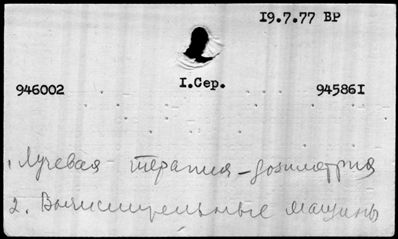 19.7.77 ВР
I.Сер.
946002 94586I
1. Лучевая терапия - дозиметрия
2. Вычислительные машины